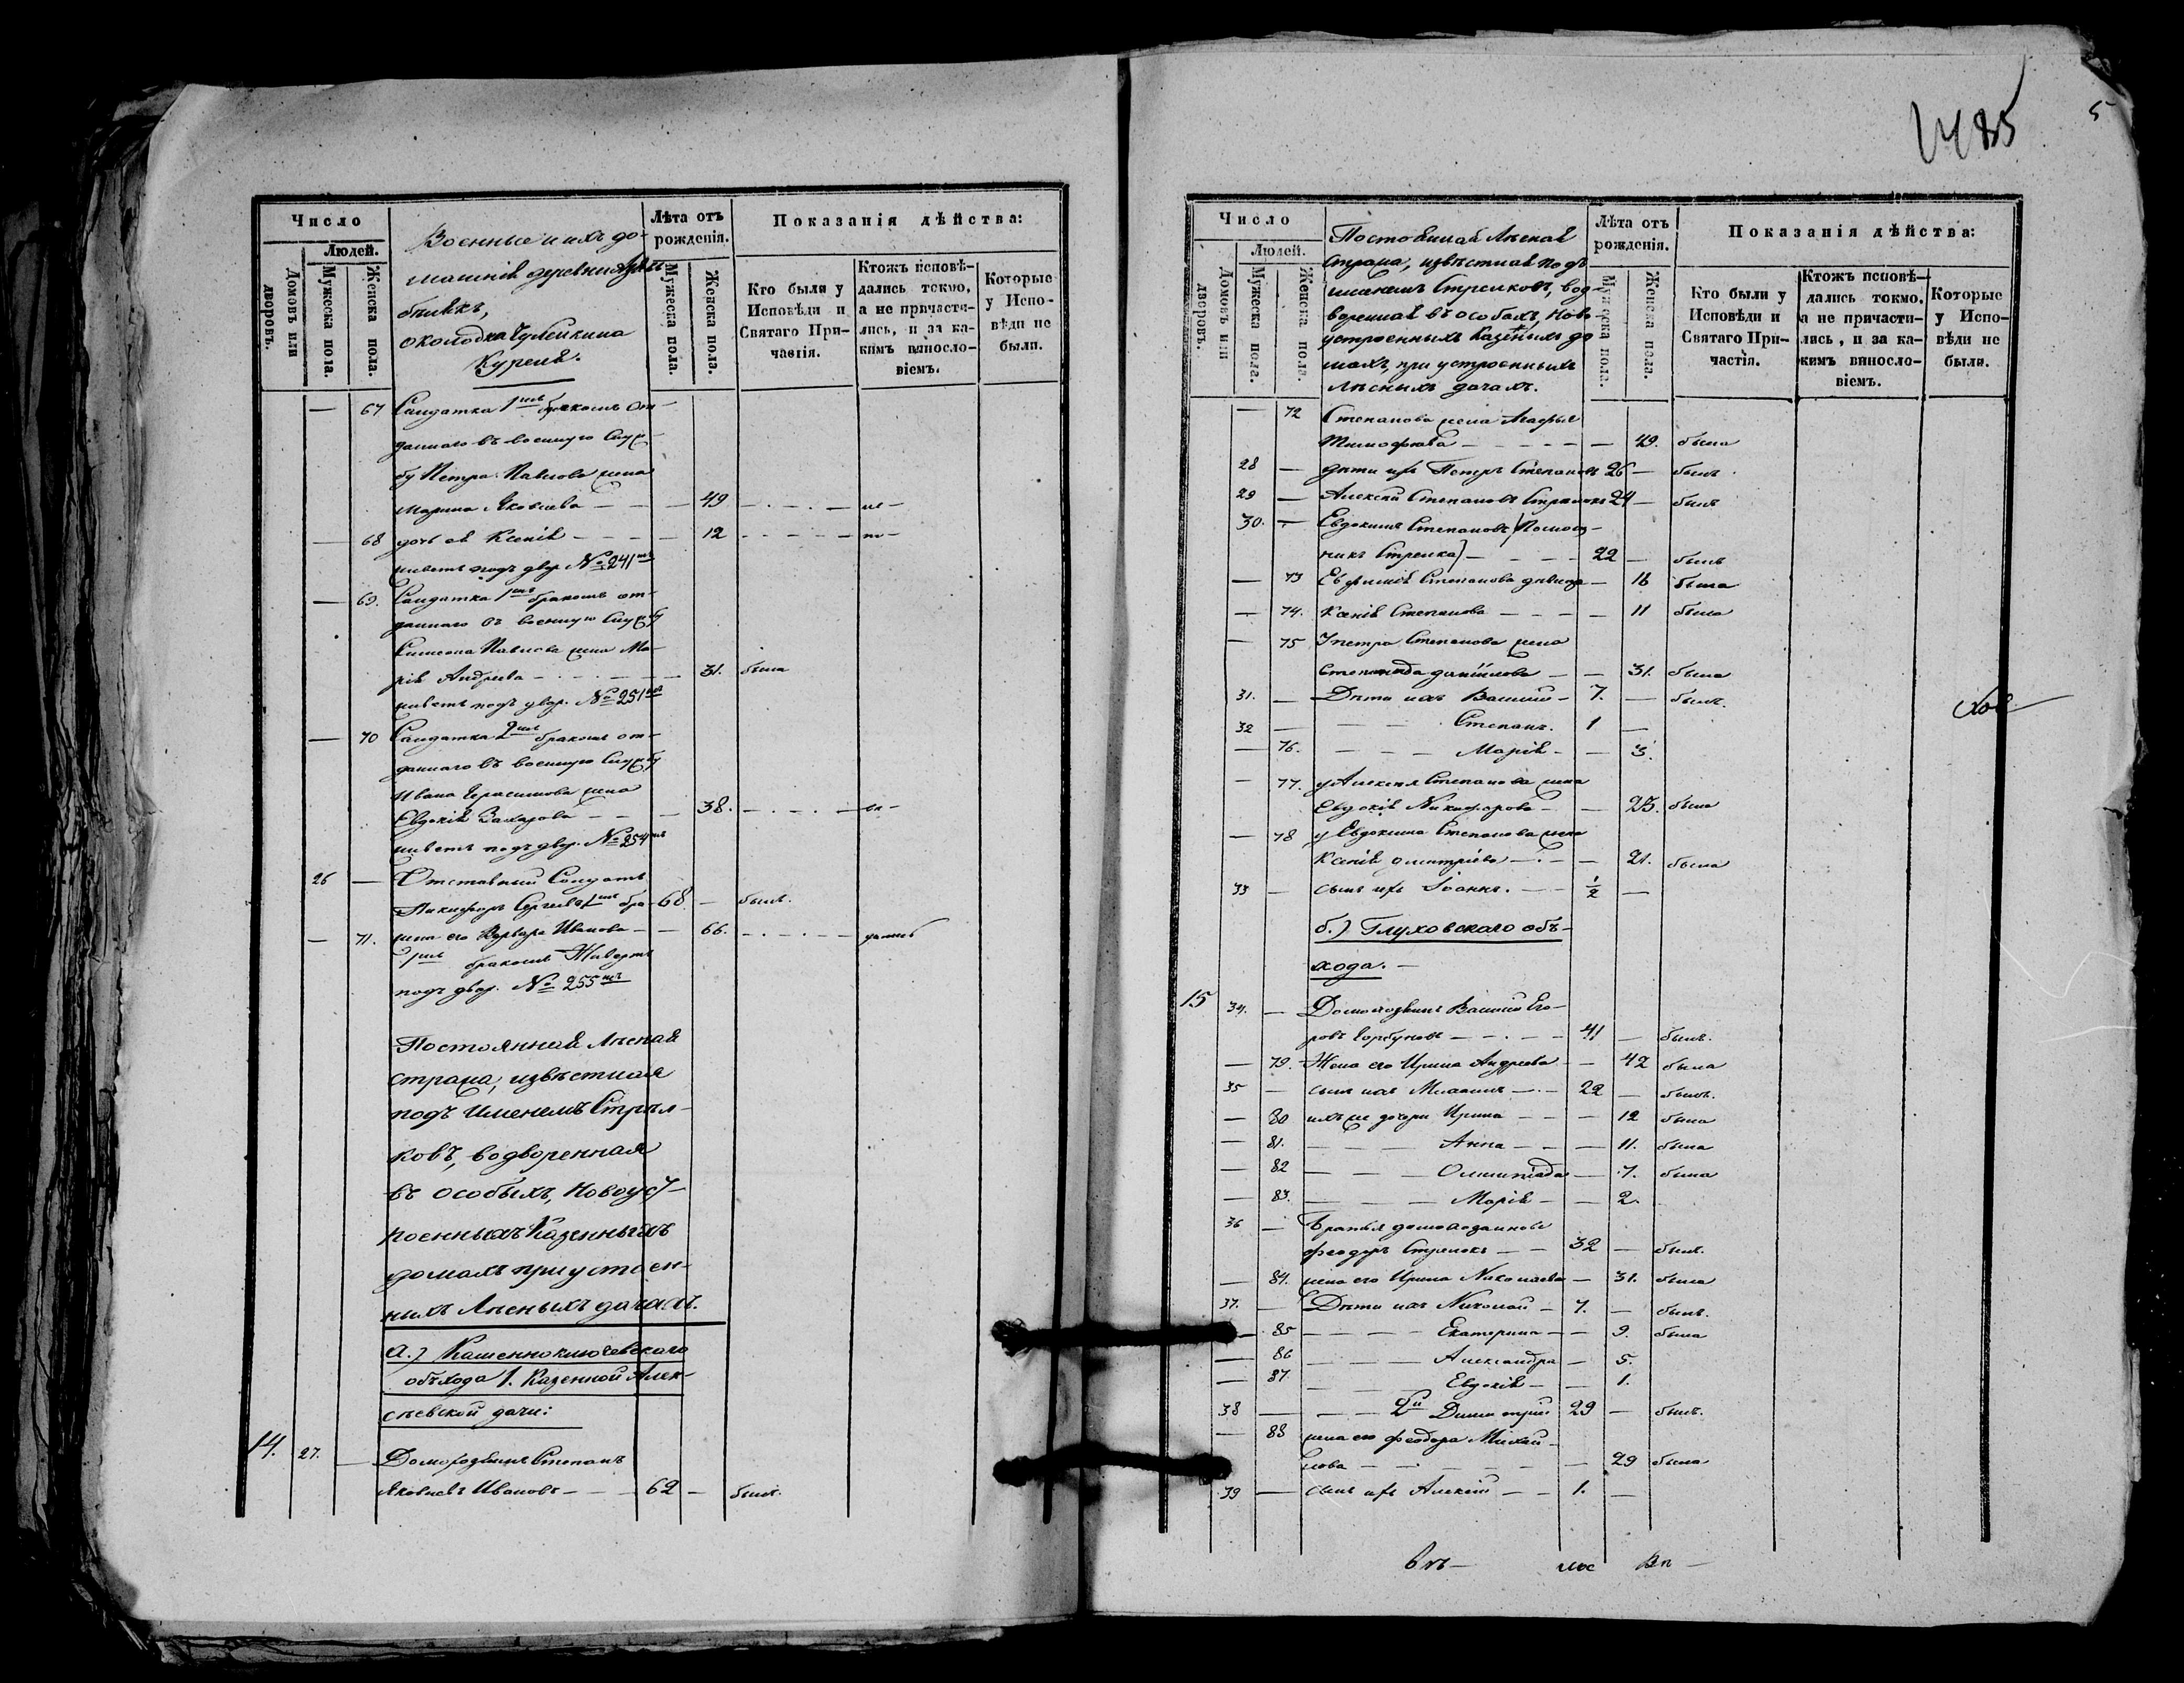 Число
Людей.
Домовъ или дворовъ.
Мужеска пола.
Женска пола.
Военные и ихъ до-
машніе деревни
околодка Чулейкина
Куреня.
Лѣта отъ
рожденія.
Мужеска пола.
Женска пола.
Показанія дѣйства:
Кто были у
Исповѣди и
Святаго При-
частія.
Ктожъ исповѣ-
дались токмо,
а не причасти-
лись, и за ка-
кимъ винносло-
віемъ.
Которые
у Испо-
вѣди не
были.
— 67 Солдатка 1мъ бракомъ от-
даннаго въ военную служ-
бу Петра Павлова жена
Марина Яковлева — — — 49
— 68 дочь ея Ксенія — — — 12
живетъ подъ двор. № 241мъ
— 69. Солдатка 1мъ бракомъ от-
даннаго въ военную службу
Симеона Павлова жена Ма-
рія Андреева — — — 31. была
живетъ подъ двор. № 251мъ
— 70 Солдатка 2мъ бракомъ от-
даннаго въ военную службу
Ивана Герасимова жена
Евдокія Захарова — — — 38.
живетъ подъ двор. № 254мъ
26 — Отставный Солдатъ
Никифоръ Сергѣевъ 1мъ бра- 68 — былъ.
— 71. жена его Варвара Иванова — — 66.
1мъ бракомъ Живетъ
подъ двор. № 255мъ
Постоянная Лѣсная
стража, извѣстная
подъ именемъ Стрѣл-
ковъ, водворенная
въ особыхъ, Новоуст-
роенныхъ Казенныхъ
домахъ при устроен-
ныхъ Лѣсныхъ дачахъ.
а.) Каменноключевскаго
объхода 1. Казенной Алек-
сѣевской дачи:
14. 27. — Домохозяинъ Степанъ
Яковлевъ Ивановъ — — — 62 — былъ.
485
5
Число
Людей.
Домовъ или дворовъ.
Мужеска пола.
Женска пола.
Постоянная Лѣсная
стража, извѣстная подъ
именемъ Стрелковъ, вод-
воренная въ особыхъ Ново-
устроенныхъ Казенныхъ до-
махъ при устроенныхъ
Лѣсныхъ дачахъ.
Лѣта отъ
рожденія.
Мужеска пола.
Женска пола.
Показанія дѣйства:
Кто были у
Исповѣди и
Святаго При-
частія.
Ктожъ исповѣ-
дались токмо,
а не причасти-
лись, и за ка-
кимъ винносло-
віемъ.
Которые
у Испо-
вѣди не
были.
— 72 Степанова жена Агафья
Тимофѣева — — — — 49. была
28 — дѣти ихъ Петръ Степановъ 26 — былъ.
29 — Алексѣй Степановъ Стрѣлокъ 24 — былъ
30. — Евдокимъ Степановъ (Помощ-
никъ Стрелка) — — — 22 — былъ
— 73 Евфимія Степанова дѣвица — 18 была
— 74. Ксенія Степанова — — — 11 была
— 75 У Петра Степанова жена
Степанида Даніилова — — 31. была
31. — Дѣти ихъ Василій — 7. — былъ.
32 — — Степанъ. 1 —
— 76. — — — Марія — — 3.
— 77. у Алексѣя Степанова жена
Евдокія Никифорова — — 25. была
— 78 у Евдокима Степанова жена
Ксенія Димитріева — — — 21. была
33 — сынъ ихъ Іоаннъ. — — 1/2 —
б.) Глуховскаго объ-
хода. —
15 34. — Домохозяинъ Василій Его-
ровъ Горбуновъ — — — 41 — былъ.
— 79. Жена его Ирина Андреева — — 42 была
35 — сынъ ихъ Михаилъ — — 22 — былъ.
— 80 ихъ же дочери Ирина — — — 12 была
— 81. — — — Анна — — — 11. была
— 82 — — — Олимпіада — 7. была
— 83. — — — Марія — — 2.
36 — Братья домохозяиновы
Феодоръ Стрелокъ — — 32 — былъ.
— 84. жена его Ирина Николаева — 31. была
37. — Дѣти ихъ Николай — 7. — былъ.
— 85 — — — Екатерина — — 9. была
— 86 — — — Александра — 5.
— 87 — — — Евдокія — — 1.
38 — — — 2й Димитрій 29 — былъ.
— 88 жена его Феодора Михай-
лова — — — — — 29 была
39 — сынъ ихъ Алексѣй — — 1. —